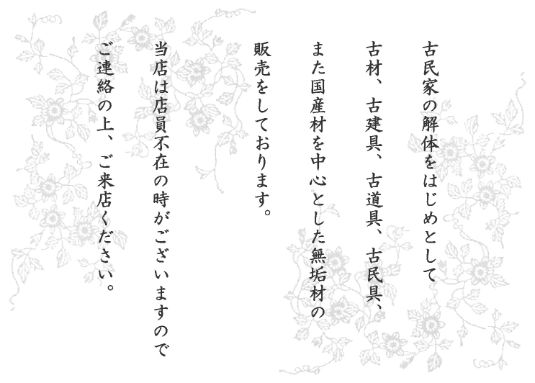 古民家の解体をはじめとして
古材、古建具、古道具、古民具、
また国産材を中心とした無垢材の
販売をしております。
当店は店員不在の時がございますので
ご連絡の上、ご来店ください。